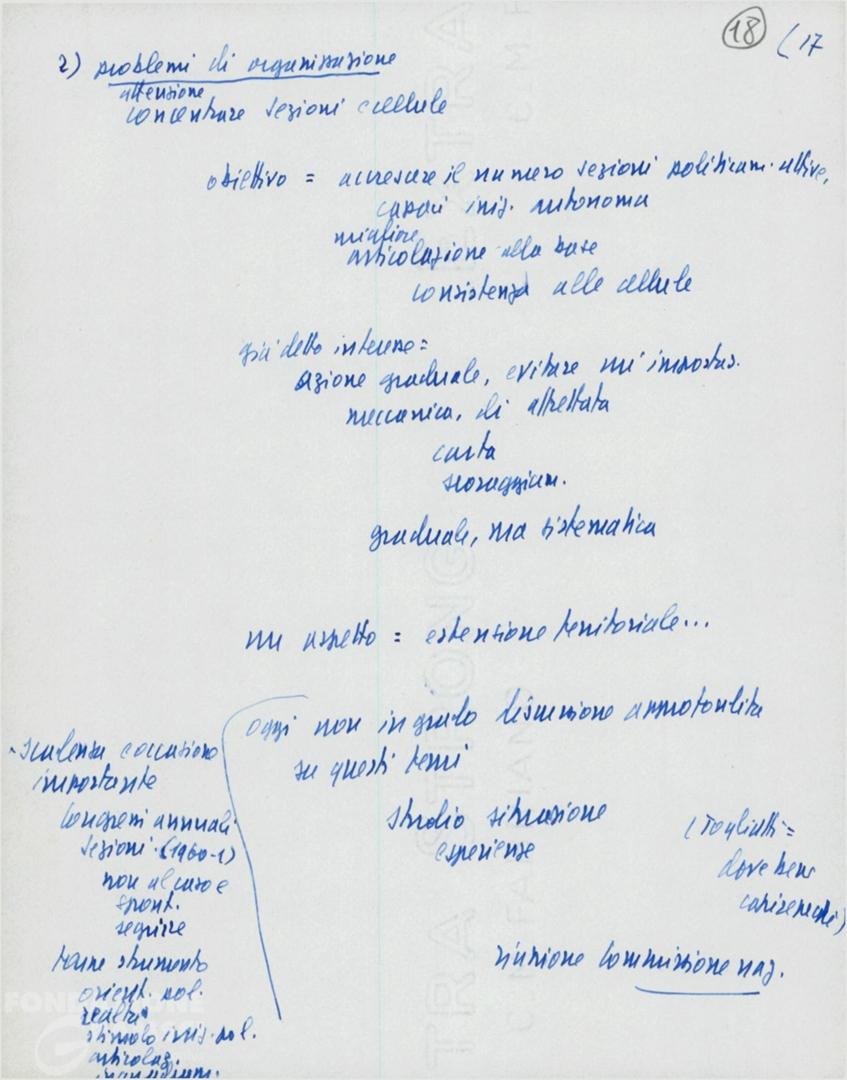 18 (17
2) problemi di organizzazione
attenzione
concentrare sezioni e cellule
obiettivo = accrescere il numero sezioni politicam. attive,
capaci iniz. autonoma
migliore
articolazione alla base
consistenza alle cellule
già detto interesse =
azione graduale, evitare un'impostaz.
meccanica, di affrettata
carta
scoraggiam.
graduale, ma sistematica
un aspetto = estensione territoriale...
oggi non in grado discussione approfondita
su questi temi
studio situazione
esperienze
(Togliatti =
dove ben
riunione Commissione naz.
- scadenza e occasione
importante
Congressi annuali
sezioni (1960-1)
non al caso e
spont.
seguire
farne strumento
orient. pol.
realtà
stimolo iniz. pol.
articolaz.
FONDAZIONE